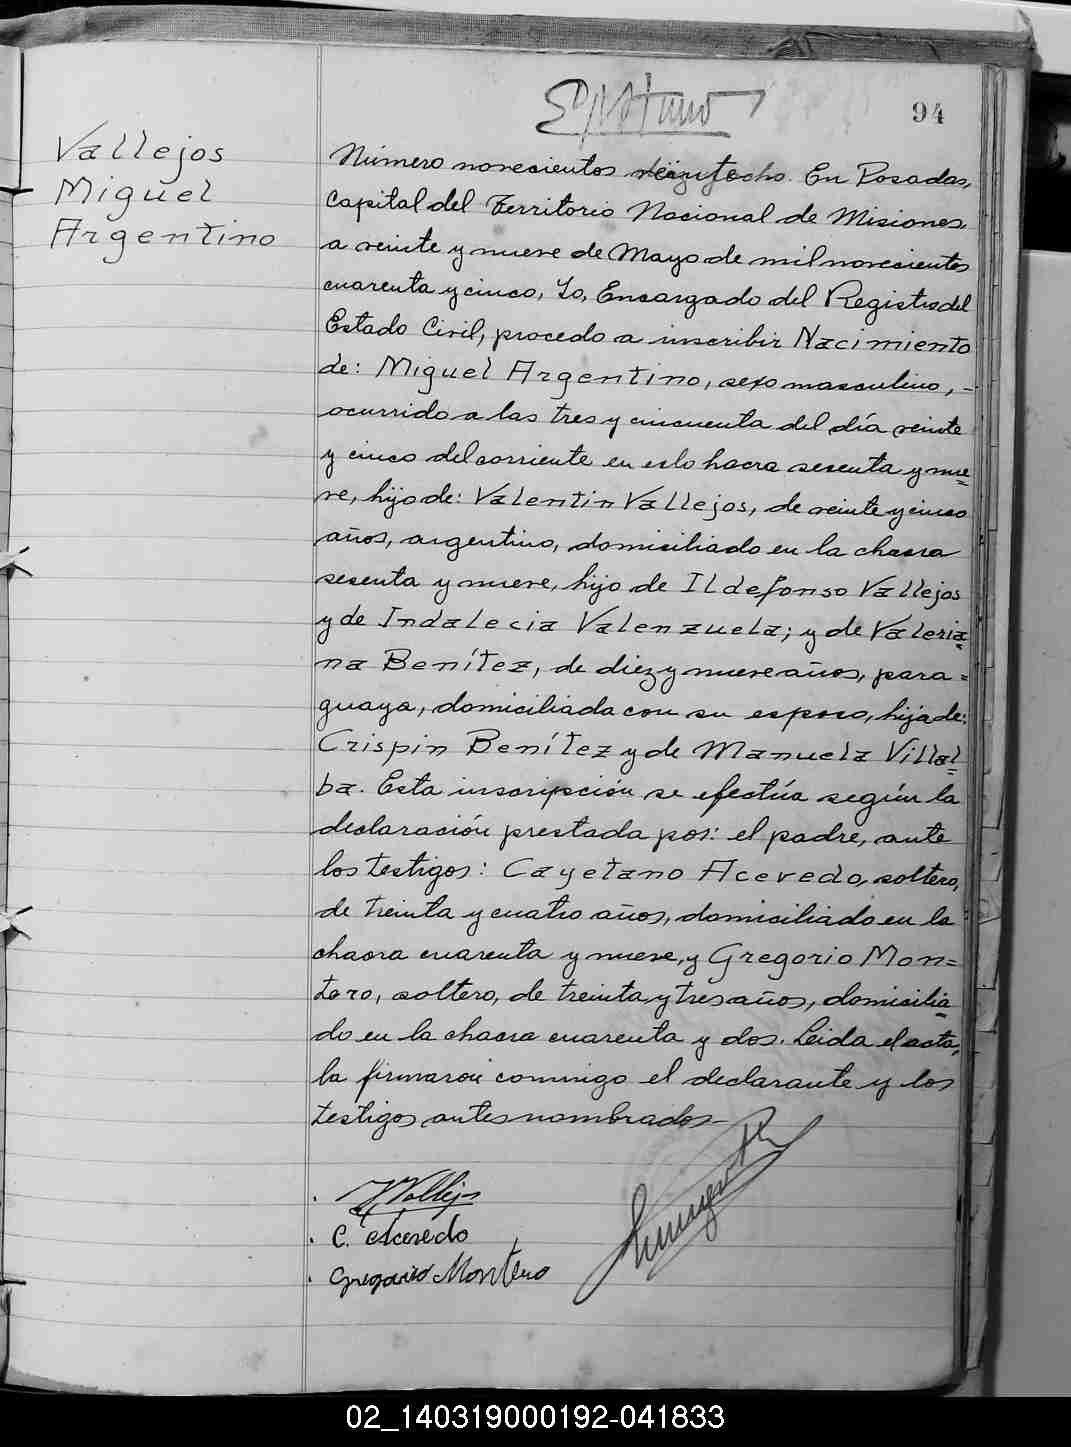 94
Vallejos
Miguel
Argentino
Número novecientos veintiocho. En Posadas,
Capital del Territorio Nacional de Misiones,
a veinte y nueve de Mayo de mil novecientos
cuarenta y cinco, Yo, Encargado del Registro del
Estado Civil, procedo a inscribir Nacimiento
de: Miguel Argentino, sexo masculino, -
ocurrido a las tres y cincuenta del día veinte
y cinco del corriente en la chacra sesenta y nue=
ve, hijo de: Valentin Vallejos, de veinte y cinco
años, argentino, domiciliado en la chacra
sesenta y nueve, hijo de Ildefonso Vallejos
y de Indalecia Valenzuela; y de Valeria=
na Benítez, de diez y nueve años, para=
guaya, domiciliada con su esposo, hija de:
Crispin Benítez y de Manuela Villal=
ba. Esta inscripción se efectúa según la
declaración prestada por: el padre, ante
los testigos: Cayetano Acevedo, soltero,
de treinta y cuatro años, domiciliado en la
chacra cuarenta y nueve, y Gregorio Mon=
tero, soltero, de treinta y tres años, domicilia=
do en la chacra cuarenta y dos. Leida el acta,
la firmaron conmigo el declarante y los
testigos antes nombrados-
V Vallejs
C. Acevedo
Gregorio Montero
02_140319000192-041833